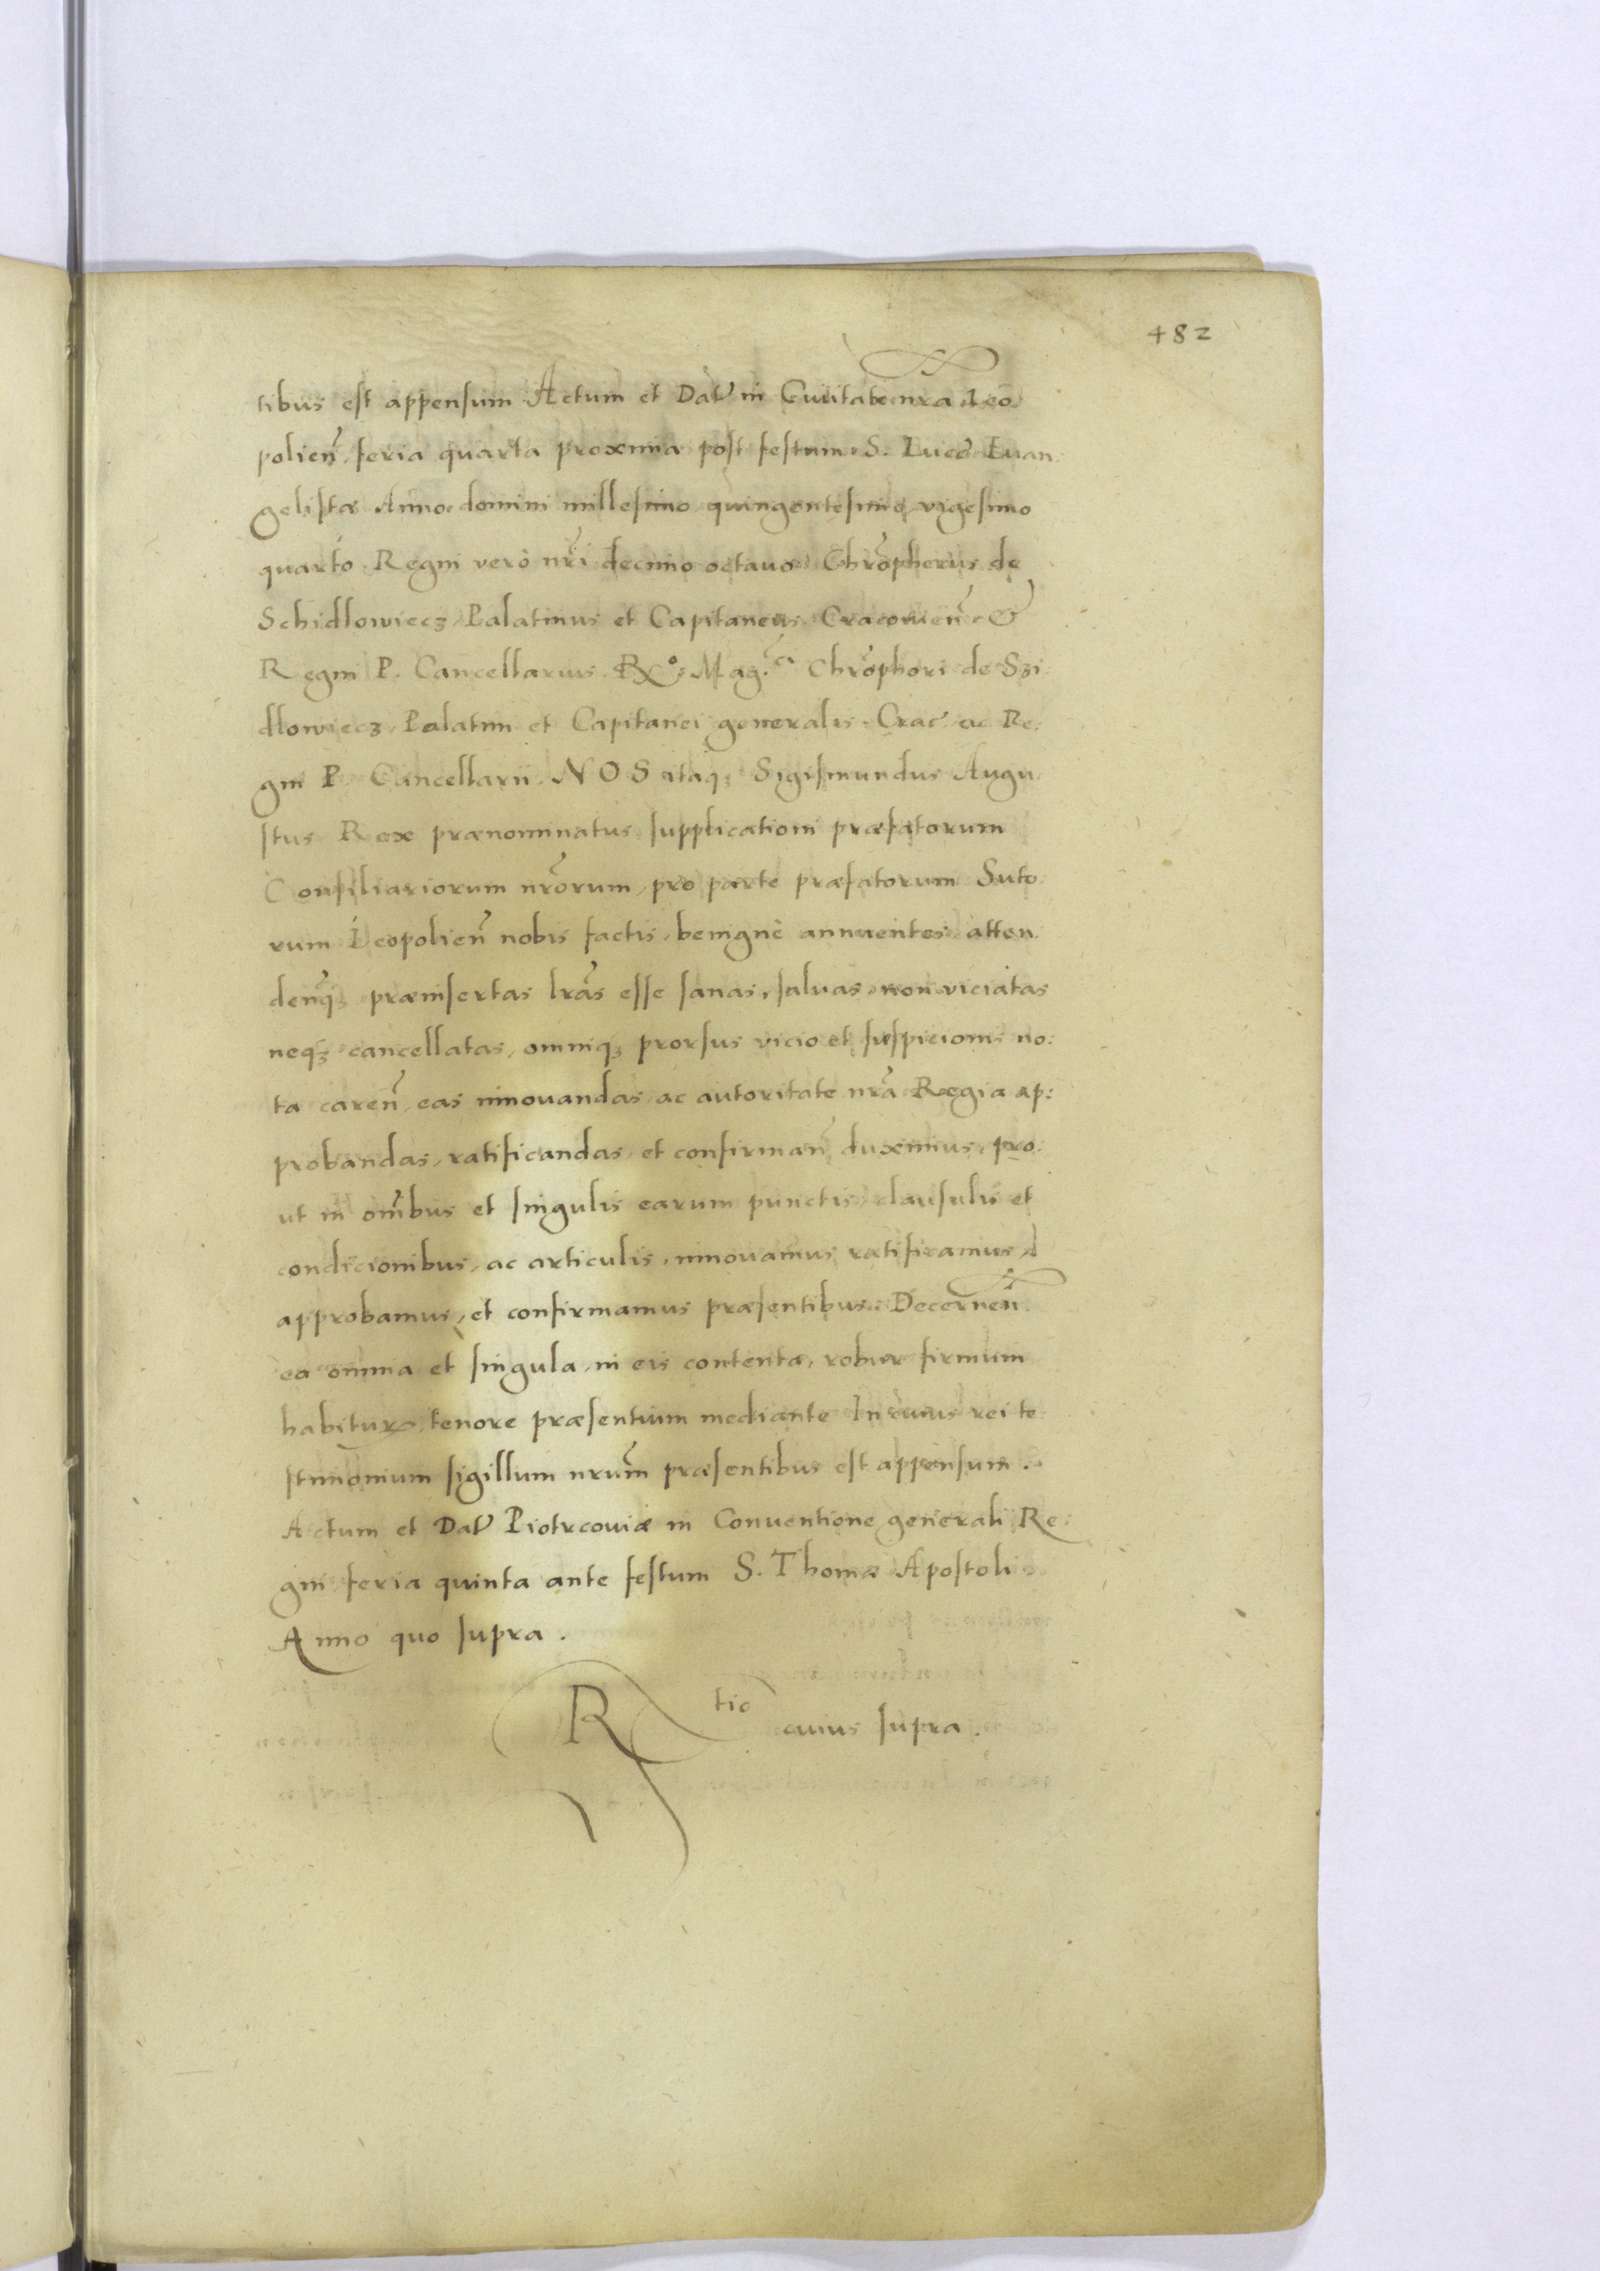 482
tibus est appensum. Actum et Dat̃ in Ciuitate nra Leo
polieñ, feria quarta proxima post festum S. Lucæ Euan:
gelistæ Anno domini millesimo quingentesimo vigesimo
quarto. Regni verò nr̃i decimo octauo. Chr̃ophorus de
Schidlowiecz, Palatinus et Capitaneus Cracovieñ &
Regni P. Cancellarius. Rᵒ: Mag.ᶜⁱ Chr̃ophori de Szi
dlowiecz, Palatini et Capitanei generalis Crac̃ ac Re:
gni P. Cancellarii. NOS itaqȝ Sigismundus Augu
stus Rex prænominatus supplicationi præfatorum
Consiliariorum nr̃orum, pro parte præfatorum Suto
rum Leopolieñ nobis factis, benignè annuentes atten
denqȝ præinsertas lr̃as esse sanas, saluas, non viciatas
neqȝ cancellatas, omniqȝ prorsus vicio et suspicionis no:
ta careñ, eas innouandas ac autoritate nr̃a Regia ap:
probandas, ratificandas, et confirmañ duximus, pro:
ut in om̃ibus et singulis earum punctis, clausulis et
condicionibus, ac articulis, innouamus ratificamus,
approbamus, et confirmamus præsentibus. Decerneñ
ea omnia et singula, in eis contenta, robur firmum
habitura, tenore præsentium mediante. In cuius rei te
stimonium sigillum nrum̃ præsentibus est appensum.
Actum et Dat̃ Piotrcouiæ in Conuentione generali Re:
gni feria quinta ante festum S. Thomæ Apostoli
Anno quo supra.
R tio cuius supra.